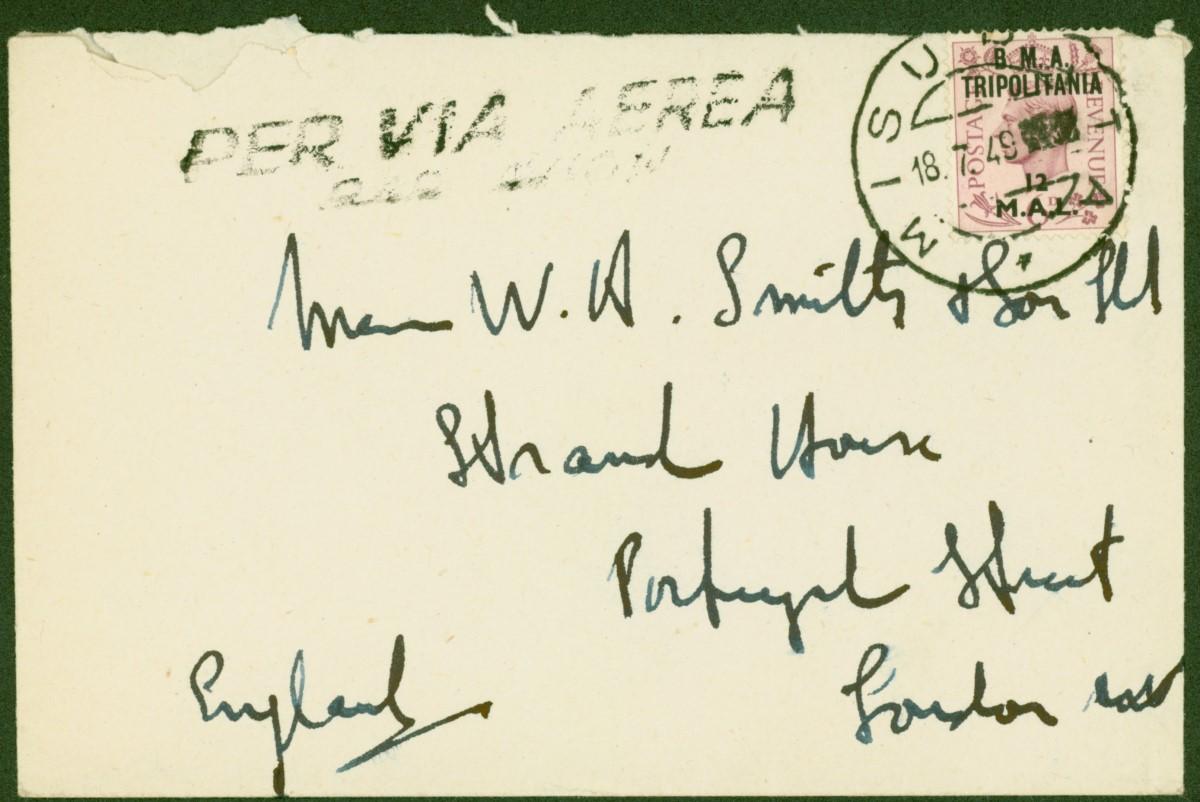 PER VIA AEREA
PAR AVION
B. M. A.
TRIPOLITANIA
POSTAGE REVENUE
12
M.A.L.
MISURATA
18. 7. 49
Messrs W. H. Smith & Son Ltd
Strand House
Portugal Street
London
England